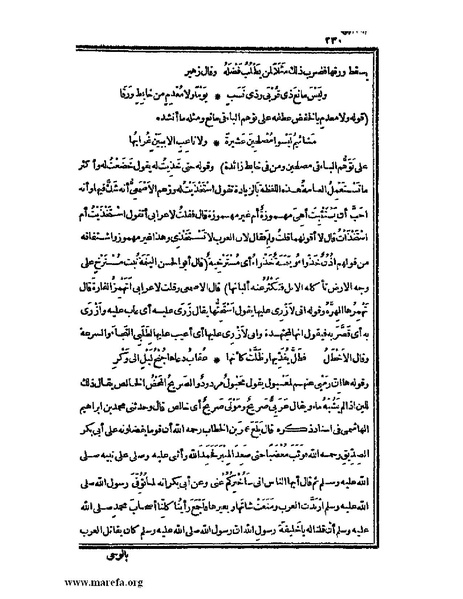 ٢٣٠
يسقط ورقها فضرب ذلك مثلا لمن يطلب فضله وقال زهير
وليس مانع ذى قربى وذى نسب * يوما ولا معدم من خابط ورقا
(قوله ولا معدم بالخفض عطفه على توهم الباء فى مانع ومثله ما أنشده
مشائيم ليسوا مصلحين عشيرة * ولا ناعب الا ببين غرابها
على توهم الباء فى مصلحين ومن فى خابط زائدة) وقوله حتى خذيت له يقول خضعت له وأكثر
ما تستعمل العامة هذه اللفظة بالزيادة تقول استخذيت له وزعم الاصمعى أنه شك فيها وأنه
أحب أن يستثبت أهى مهموزة أم غير مهموزة قال فقلت لاعرابى أتقول استخذيت أم
استخذأت قال لا أقولهما قلت ولم فقال لان العرب لا تستخذى وهذا غير مهموز واشتقاقه
من قولهم أذن خذواء وينمة خذواء أى مسترخية (قال أبو الحسن الينمة نبت مسترخ على
وجه الارض تأكله الابل فتكثر عنه ألبانها) قال الاصمعى وقلت لاعرابى أتهمز الفارة قال
تهمزها الهرة وقوله انى لأزرى عليها يقول استقصرها يقال زرى عليه أى عاب عليه وأزرى
به أى قصر به فيقول انها لمجتهدة وانى لأزرى عليها أى أعيب عليها لطلبى النجاء والسرعة
وقال الاخطل فظل يفديها وظلت كأنها * عقاب دعاها جنح ليل الى وكر
وقوله هاات رمى عنهم لمعبول يقول مخبول مردود والصريح المحض الخالص يقال ذلك
للبن اذا لم يشبه ماء ويقال عربى صريح ومولى صريح أى خالص قال وحدثنى محمد بن ابراهيم
الهاشمى فى اسناد ذكره قال بلغ عمر بن الخطاب رحمه الله أن قوما يفضلونه على أبى بكر
الصديق رحمه الله فوثب مغضبا حتى صعد المنبر فحمد الله وأثنى عليه وصلى على نبيه صلى
الله عليه وسلم ثم قال أيها الناس انى سأخبركم عنى وعن أبى بكر انه لما توفى رسول الله صلى
الله عليه وسلم ارتدت العرب ومنعت شاتها وبعيرها فأجمع رأينا كلنا أصحاب محمد صلى الله
عليه وسلم أن قلنا له يا خليفة رسول الله ان رسول الله صلى الله عليه وسلم كان يقاتل العرب
بالوحى
www.marefa.org